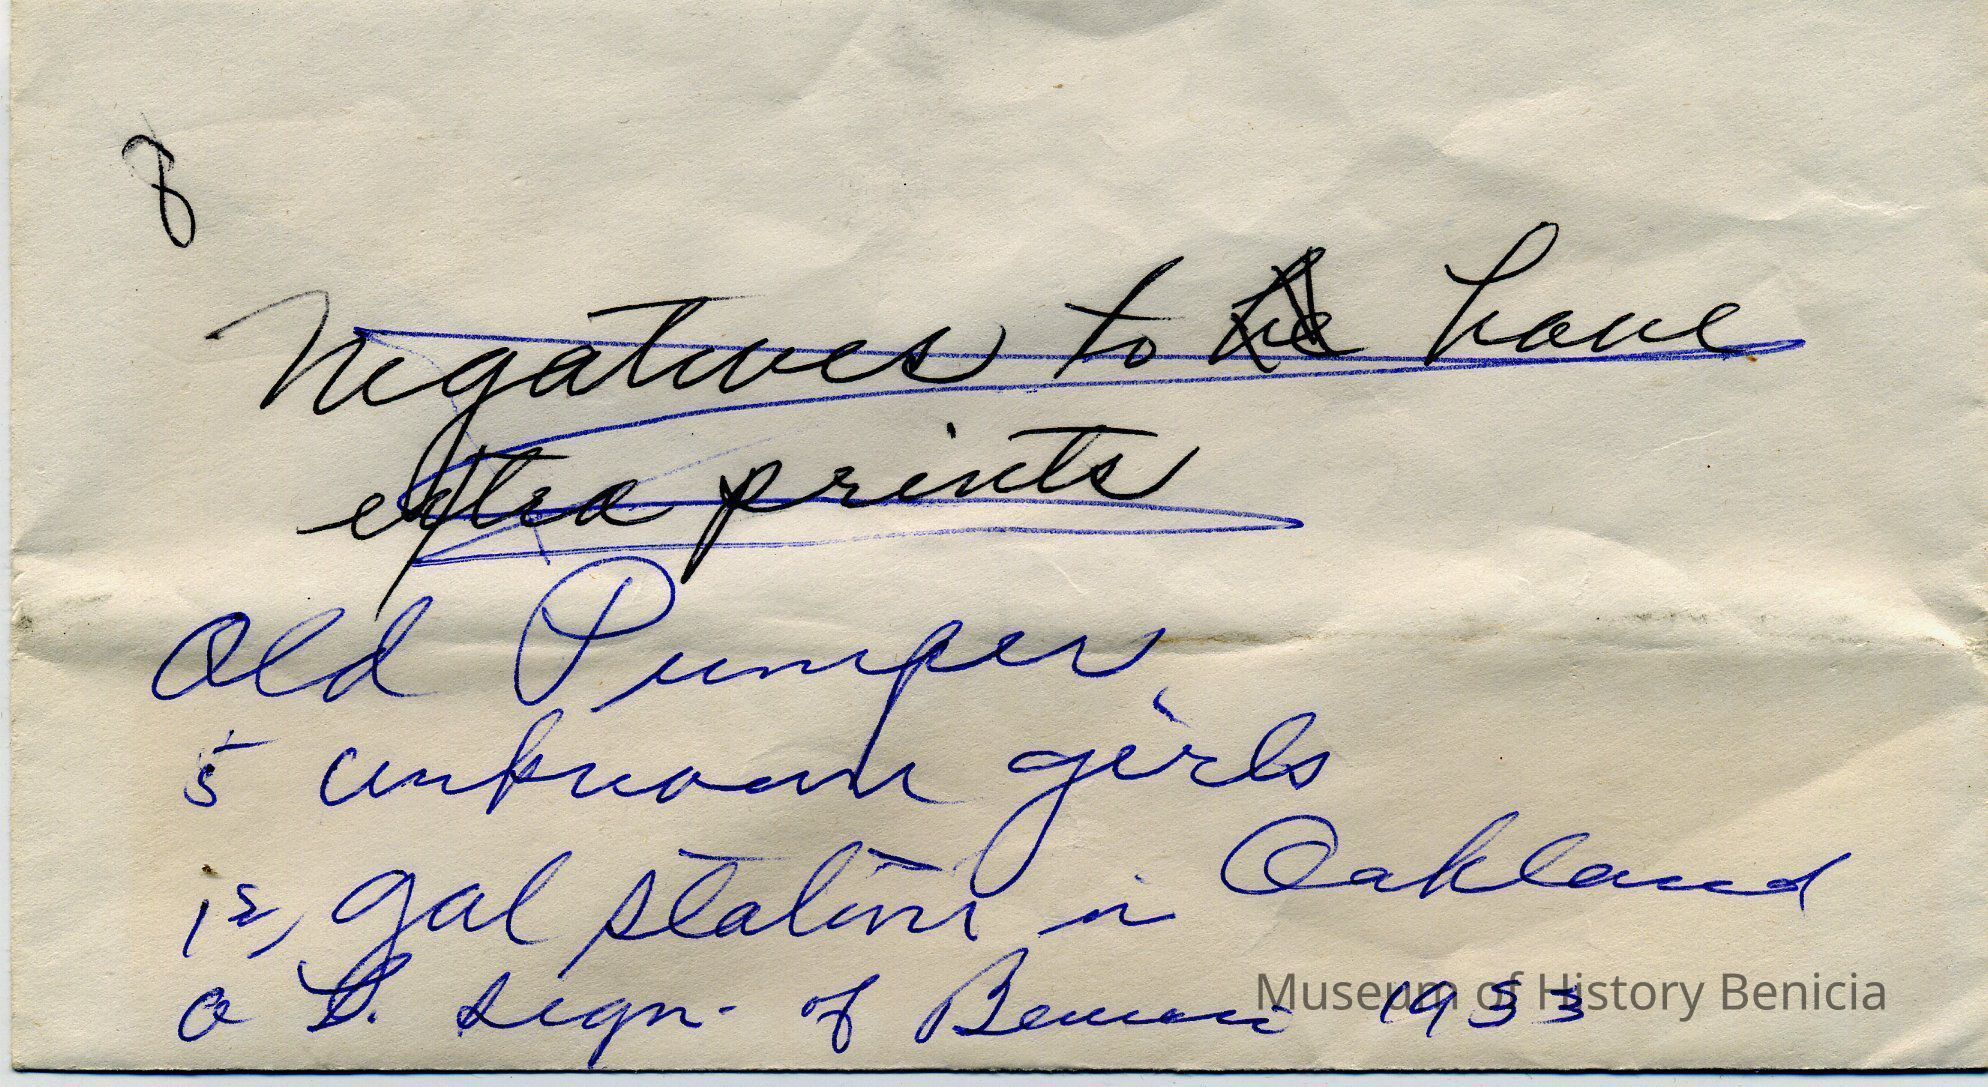 8
Negatives to be have
extra prints
Old Pumper
5 unknown girls
1st gal station in Oakland
sign. of 1933
Museum of History Benicia